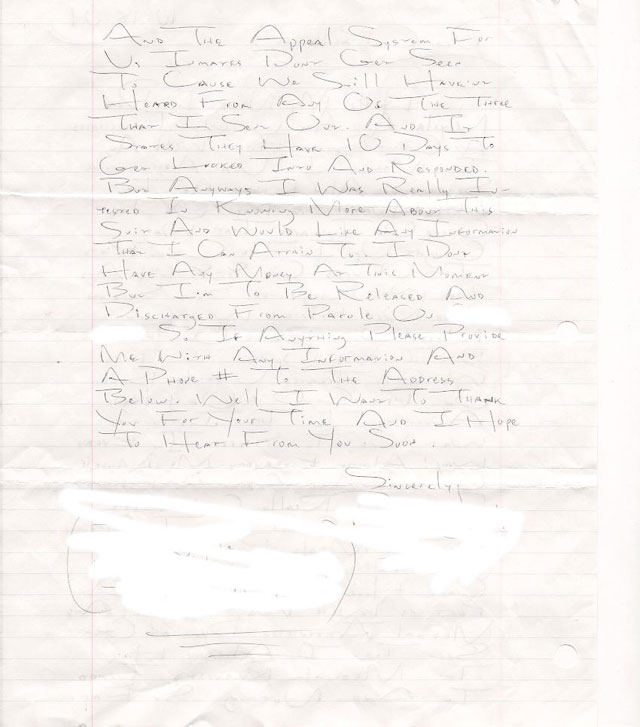 And The Appeal System For
Us Inmates Dont Get Seen
To Cause We Still Haven't
Heard From Any Of The Three
That I Sent Out. And It
States They Have 10 Days To
Get Looked Into And Responded.
But Anyways I Was Really In-
tested In Knowing More About This
Suit And Would Like Any Information
That I Can Attain To. I Dont
Have Any Money At This Moment
But I'm To Be Released And
Discharged From Parole On
So If Anything Please Provide
Me With Any Information And
A Phone # To The Address
Below. Well I Want To Thank
You For Your Time And I Hope
To Hear From You Soon.
Sincerely,